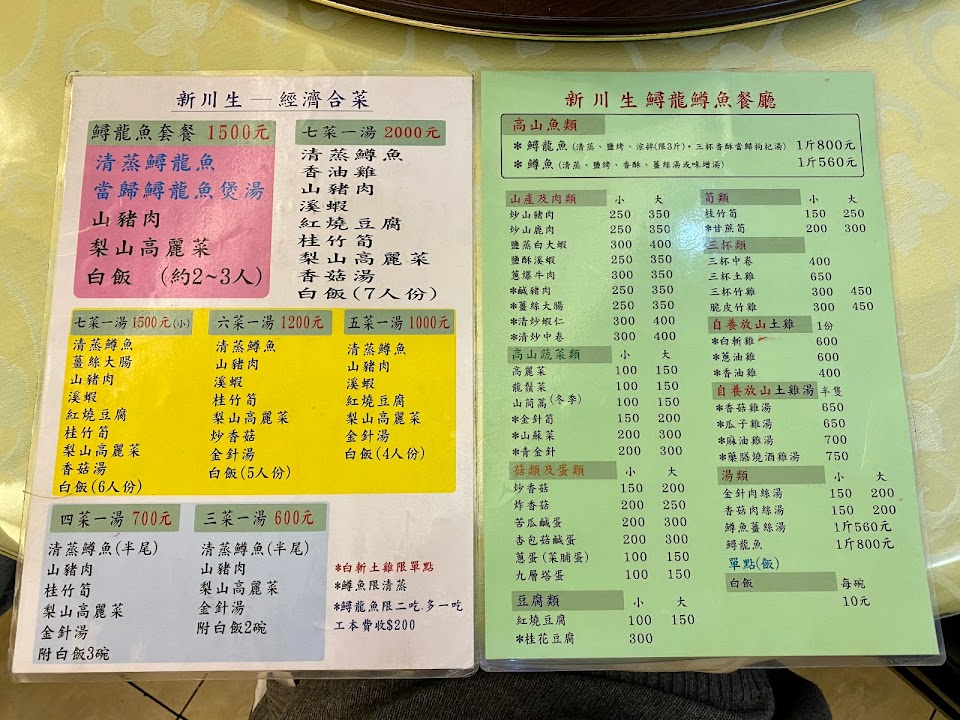 新川生—經濟合菜
鱘龍魚套餐 1500元
清蒸鱘龍魚
當歸鱘龍魚煲湯
山豬肉
梨山高麗菜
白飯 (約2~3人)
七菜一湯 2000元
清蒸鱒魚
香油雞
山豬肉
溪蝦
紅燒豆腐
桂竹筍
梨山高麗菜
香菇湯
白飯(7人份)
七菜一湯 1500元(小)
清蒸鱒魚
薑絲大腸
山豬肉
溪蝦
紅燒豆腐
桂竹筍
梨山高麗菜
香菇湯
白飯(6人份)
六菜一湯 1200元
清蒸鱒魚
山豬肉
溪蝦
桂竹筍
梨山高麗菜
炒香菇
金針湯
白飯(5人份)
五菜一湯 1000元
清蒸鱒魚
山豬肉
溪蝦
紅燒豆腐
梨山高麗菜
金針湯
白飯(4人份)
四菜一湯 700元
清蒸鱒魚(半尾)
山豬肉
桂竹筍
梨山高麗菜
金針湯
附白飯3碗
三菜一湯 600元
清蒸鱒魚(半尾)
山豬肉
梨山高麗菜
金針湯
附白飯2碗
*白斬土雞限單點
*鱒魚限清蒸
*鱘龍魚限二吃,多一吃
工本費收$200
新川生鱘龍鱒魚餐廳
高山魚類
*鱘龍魚(清蒸、鹽烤、涼拌(限3斤)·三杯香酥當歸枸杞湯) 1斤800元
*鱒魚(清蒸、鹽烤、香酥、薑絲湯或味增湯) 1斤560元
山產及肉類 小 大
炒山豬肉 250 350
炒山鹿肉 250 350
鹽蒸白大蝦 300 400
鹽酥溪蝦 250 350
蔥爆牛肉 300 350
*鹹豬肉 250 350
*薑絲大腸 250 350
*清炒蝦仁 300 400
*清炒中卷 300 400
高山蔬菜類 小 大
高麗菜 100 150
龍鬚菜 100 150
山茼蒿(冬季) 100 150
*金針筍 150 200
*山蘇菜 200 300
*青金針 200 300
菇類及蛋類 小 大
炒香菇 150 200
炸香菇 200 250
苦瓜鹹蛋 200 300
杏包菇鹹蛋 200 300
蔥蛋(菜脯蛋) 100 150
九層塔蛋 100 150
豆腐類 小 大
紅燒豆腐 100 150
*桂花豆腐 300
筍類 小 大
桂竹筍 150 250
*甘蔗筍 200 300
三杯類
三杯中卷 400
三杯土雞 650
三杯竹雞 300 450
脆皮竹雞 300 450
自養放山土雞 1份
*白斬雞 600
*蔥油雞 600
*香油雞 400
自養放山土雞湯 半隻
*香菇雞湯 650
*瓜子雞湯 650
*麻油雞湯 700
*藥膳燒酒雞湯 750
湯類 小 大
金針肉絲湯 150 200
香菇肉絲湯 150 200
鱒魚薑絲湯 1斤560元
鱘龍魚 1斤800元
單點(飯)
白飯 每碗
10元